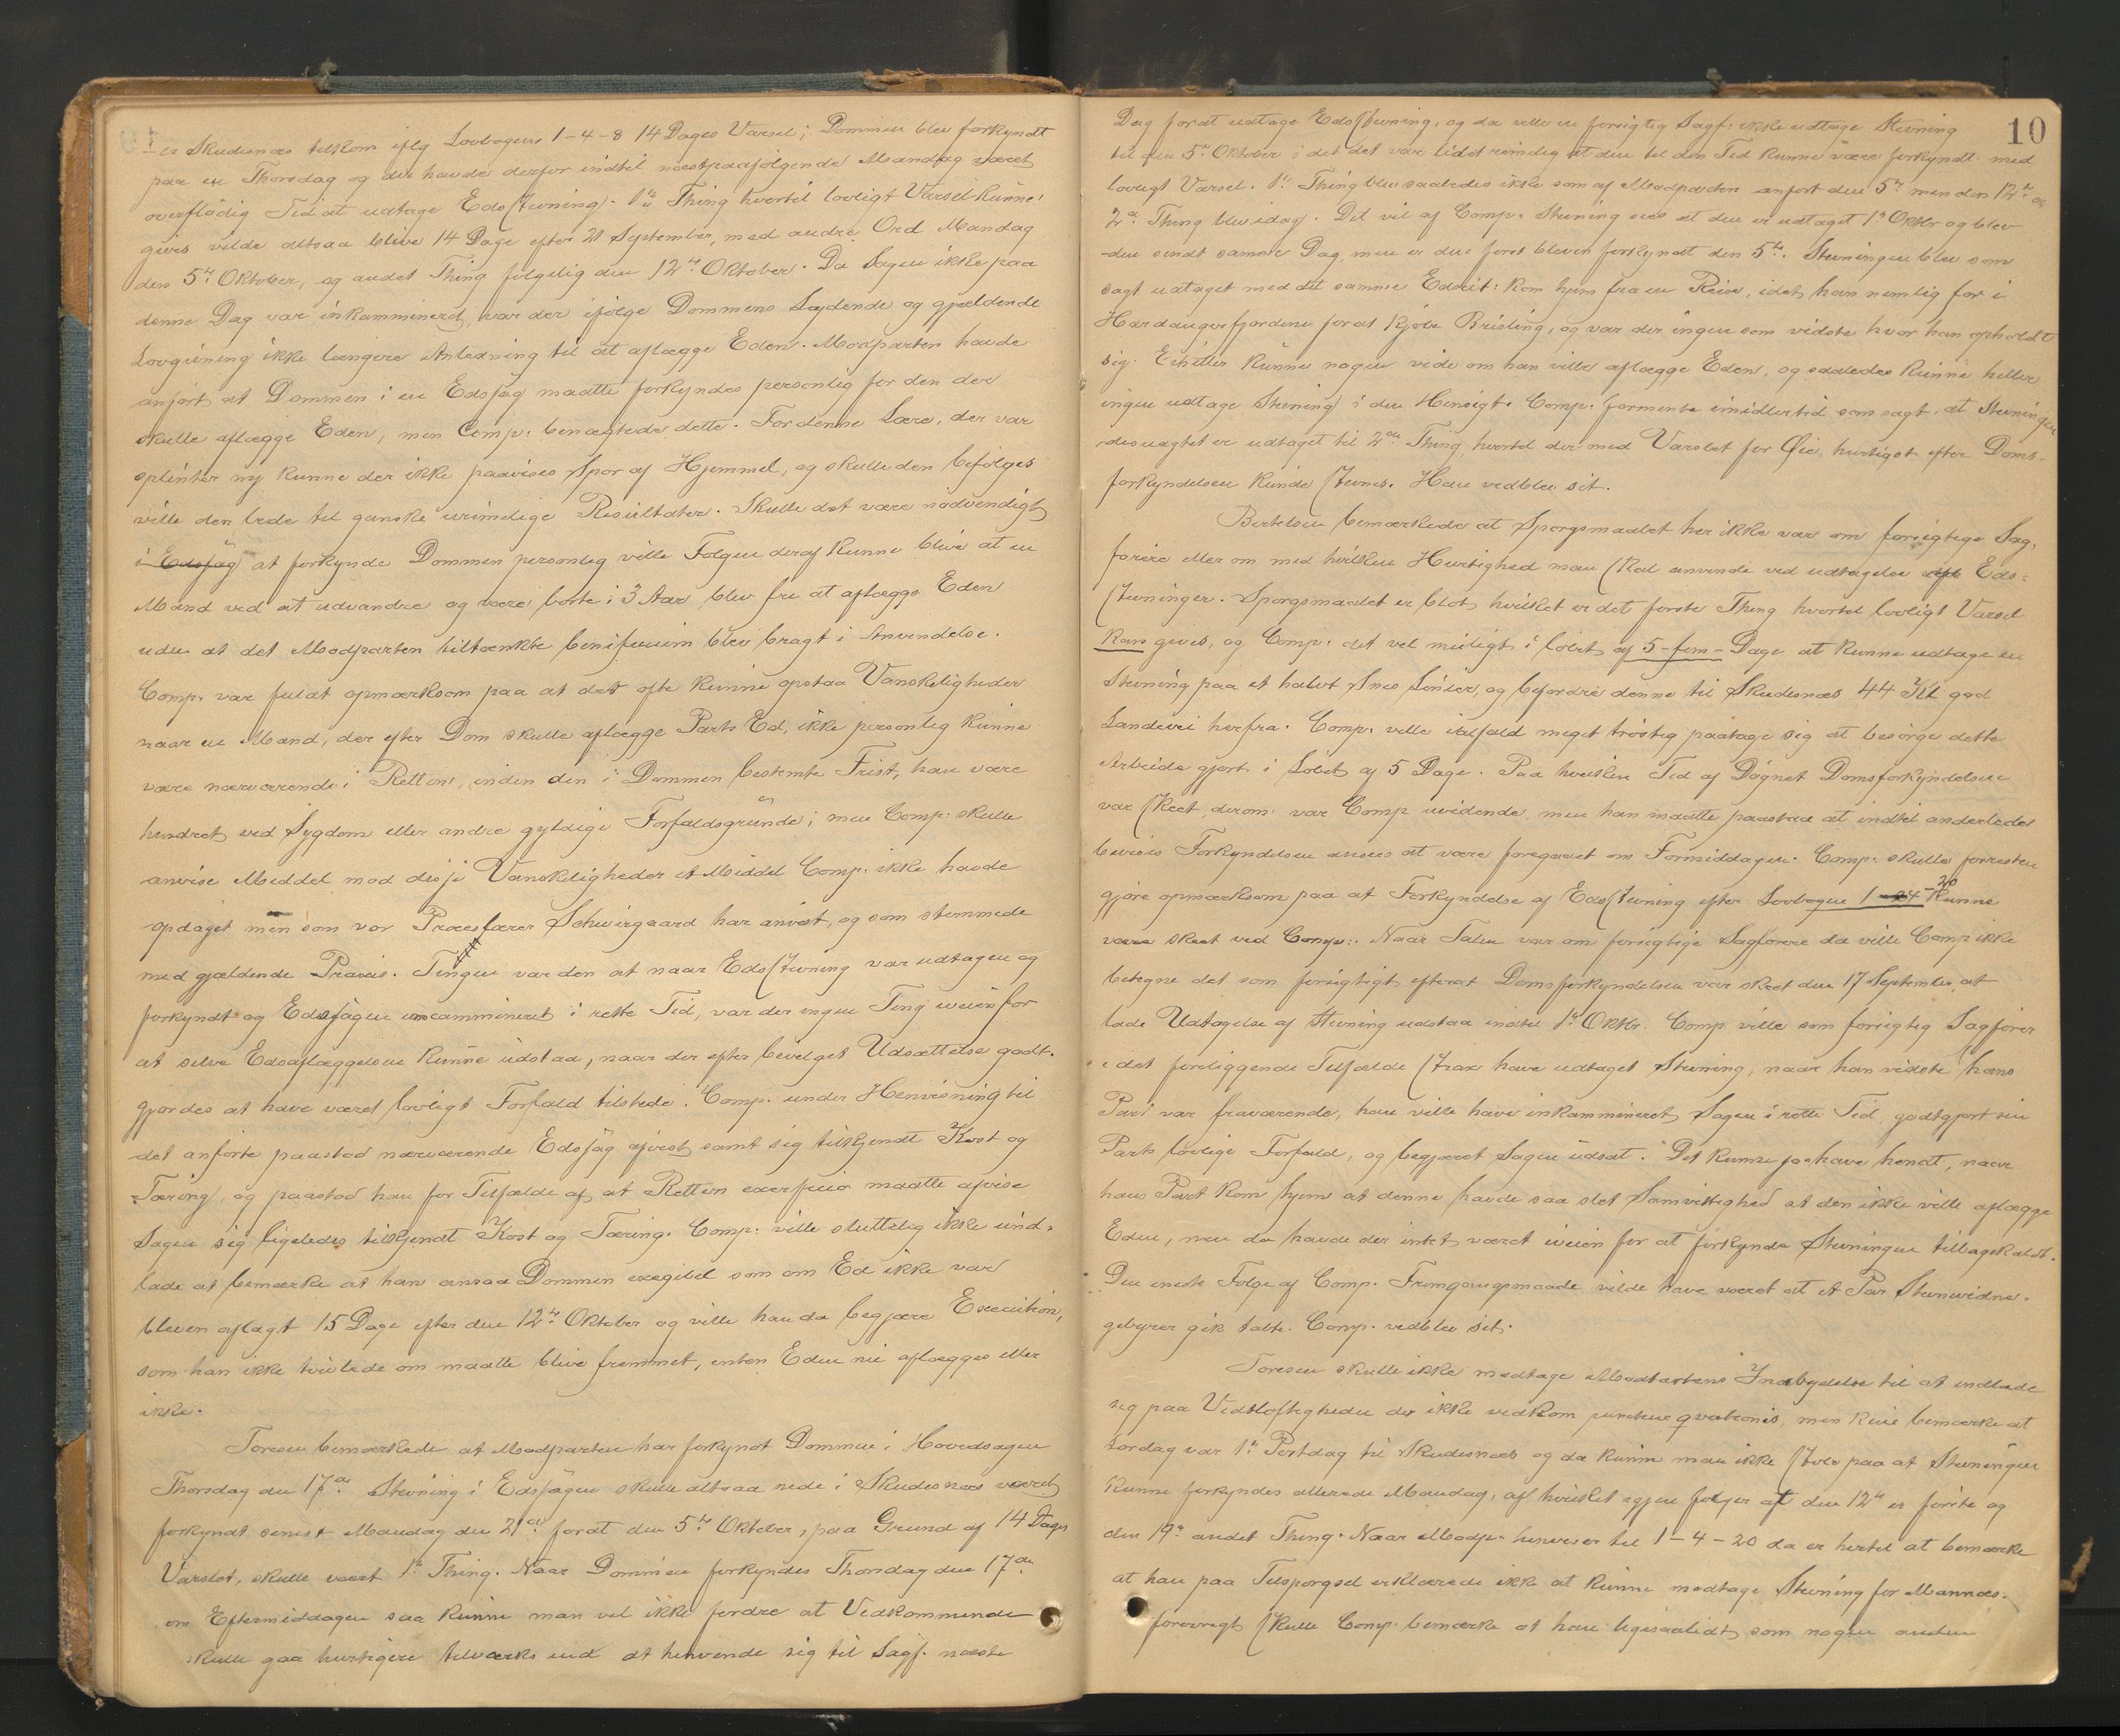 er Skudesnæs tilkom iflg Lovbogens 1-4-8 14 Dages Varsel; Dommen blev forkyndt
paa en Thorsdag og der havde derfor indtil næstpaafølgende Mandag været
overflødig Tid at udtage Edsstevning. 1ste Thing hvortil lovligt Varsel kunne
gives vilde altsaa blive 14 Dage efter 21 September, med andre Ord Mandag
den 5te Oktober, og andet Thing følgelig den 12te Oktober. Da Sagen ikke paa
denne Dag var inkammineret, var der ifølge Dommens Lydende og gjældende
Lovgivning ikke længere Anledning til at aflægge Eden. Modparten havde
anført at Dommen i en Edssag maatte forkyndes personlig for den der
skulle aflægge Eden, men Comp. benægtede dette. For denne Lære, der var
splinter ny kunne der ikke paavises Spor af Hjemmel, og skulle den befølges
ville den lede til ganske urimelige Resultater. Skulle det være nødvendigt
i Edssag at forkynde Dommen personlig ville Følgen deraf kunne blive at en
Mand ved at udvandre og være borte i 3 Aar blev fri at aflægge Eden
uden at det Modparten tiltænkte benificium blev bragt i Anvendelse.
Comp. var fuldt opmærksom paa at det ofte kunne opstaa Vanskeligheder
naar en Mand, der efter Dom skulle aflægge Parts Ed, ikke personlig kunne
være nærværende i Retten, inden den i Dommen bestemte Frist, han være
hindret ved Sygdom eller andre gyldige Forfaldsgrunde; men Comp. skulle
anvise Middel mod disse Vanskeligheder et Middel Comp. ikke havde
opdaget men som vor Procesfører Schweigaard har anvist, og som stemmede
med gjældende Praxis. Tingen var den at naar Edsstevning var udtagen og
forkyndt og Edssagen incammineret i rette Tid, var der ingen Ting iveien for
at selve Edsaflæggelsen kunne udstaa, naar der efter bevilget Udsættelse godt-
gjordes at have været lovligt Forfald tilstede. Comp. under Henvisning til
det anførte paastod nærværende Edssag afvist samt sig tilkjendt Kost og
Tæring, og paastod han for Tilfælde af at Retten ex officio maatte afvise
Sagen sig ligeledes tilkjendt Kost og Tæring. Comp. ville sluttelig ikke und-
lade at bemærke at han ansaa Dommen exegibel som om Ed ikke var
bleven aflagt 15 Dage efter den 12te Oktober og ville han da begjære Execution,
som han ikke tvivlede om maatte blive fremmet, enten Eden nu aflægges eller
ikke.
Toresen bemærkede at Modparten har forkyndt Dommen i Hovedsagen
Thorsdag den 17de. Stevning i Edssagen skulle altsaa nede i Skudesnæs været
forkyndt senest Mandag den 21de fordi den 5te Oktober, paa Grund af 14 Dages
Varslet, skulle været 1ste Thing. Naar Dommen forkyndes Thorsdag den 17de
om Eftermiddagen saa kunne man vel ikke fordre at Vedkommende
skulle gaa hurtigere tilværks end at henvende sig til Sagf. næste
10
Dag for at udtage Edsstevning, og da ville en forsigtig Sagf. ikke udtage Stevning
til den 5te Oktober idet det var lidet rimelig at den til den Tid kunne være forkyndt med
lovligt Varsel. 1ste Thing blev saaledes ikke som af Modparten anført den 5te men den 12te og
2det Thing blev idag. Det vil af Comp. Stevning sees at den er udtaget 1ste Oktbr og blev
den sendt samme Dag, men er den først bleven forkyndt den 5te. Stevningen blev som
sagt udtaget med det samme Edseit. kom hjem fra en Reise, idet han nemlig for i
Hardangerfjorden for at kjøbe Brisling, og var der ingen som vidste hvor han opholdt
sig. Eiheller kunne nogen vide om han ville aflægge Eden, og saaledes kunne heller
ingen udtage Stevning i den Hensigt. Comp. formente imidlertid som sagt, at Stevningen
desuagtet er udtaget til 2det Thing, hvortil der med Varslet for Øie, hurtigst efter Doms-
forkyndelsen kunde stevnes. Han vedblev sit.
Bertelsen bemærkede at Spørgsmaalet her ikke var om forsigtige Sag-
førere eller om med hvilken Hurtighed man skal anvende ved udtagelse af Eds-
stevninger. Spørgsmaalet er blot, hvilket er det første Thing hvortil lovligt Varsel
kan gives, og Comp. det vel muligt i løbet af 5-fem-Dage at kunne udtage en
Stevning paa et halvt Snes Linier, og befordre denne til Skudesnæs 44 Kil god
Landevei herfra. Comp. ville ialfald meget trøstig paatage sig at besørge dette
Arbeide gjort i Løbet af 5 Dage. Paa hvilken Tid af Døgnet Domsforkyndelsen
var skeet, derom var Comp uvidende, men han maatte paastaa at indtil anderledes
bevises Forkyndelsen ansees at være foregaaet om Formiddagen. Comp. skulle forresten
gjøre opmærksom paa at Forkyndelse af Edsstevning efter Lovbogens 1-4-20 kunne
være skeet ved Comp:. Naar Talen var om forsigtige Sagførere da ville Comp ikke
betegne det som forsigtigt efterat Domsforkyndelsen var skeet den 17 September, at
lade Udtagelse af Stevning udstaa indtil 1ste Oktbr. Comp ville som forsigtig Sagfører
i det foreliggende Tilfælde strax have udtaget Stevning, naar han vidste hans
Part var fraværende, han ville have inkammineret Sagen i rette Tid, godtgjort sin
Parts lovlige Forfald, og begjæret Sagen udsat. Det kunne jo have hendt, naar
hans Part kom hjem at denne havde saa slet Samvittighed at den ikke ville aflægge
Eden, men da havde der intet været iveien for at forkynde Stevningen tilbagekaldt.
Den eneste Følge af Comp. Fremgangsmaade vilde have været at et Par Stevnevidne-
gebyrer gik tabte. Comp. vedblev sit.
Toresen skulle ikke modtage Modpartens Indbydelse til at indlade
sig paa Vidtløftigheder der ikke vedkom punctum qvestionis, men kun bemærke at
Lørdag var 1ste Postdag til Skudesnæs og da kunne man ikke stole paa at Stevningen
kunne forkyndes allerede Mandag, af hvilket igjen følger at den 12te er første og
den 19de andet Thing. Naar Modp. henviser til 1-4-20 da er hertil at bemærke
at han paa Tilspørgsel erklærede ikke at kunne modtage Stevning for Mannes.
forøvrigt skulle Comp. bemærke at han ligesaalidt som nogen anden